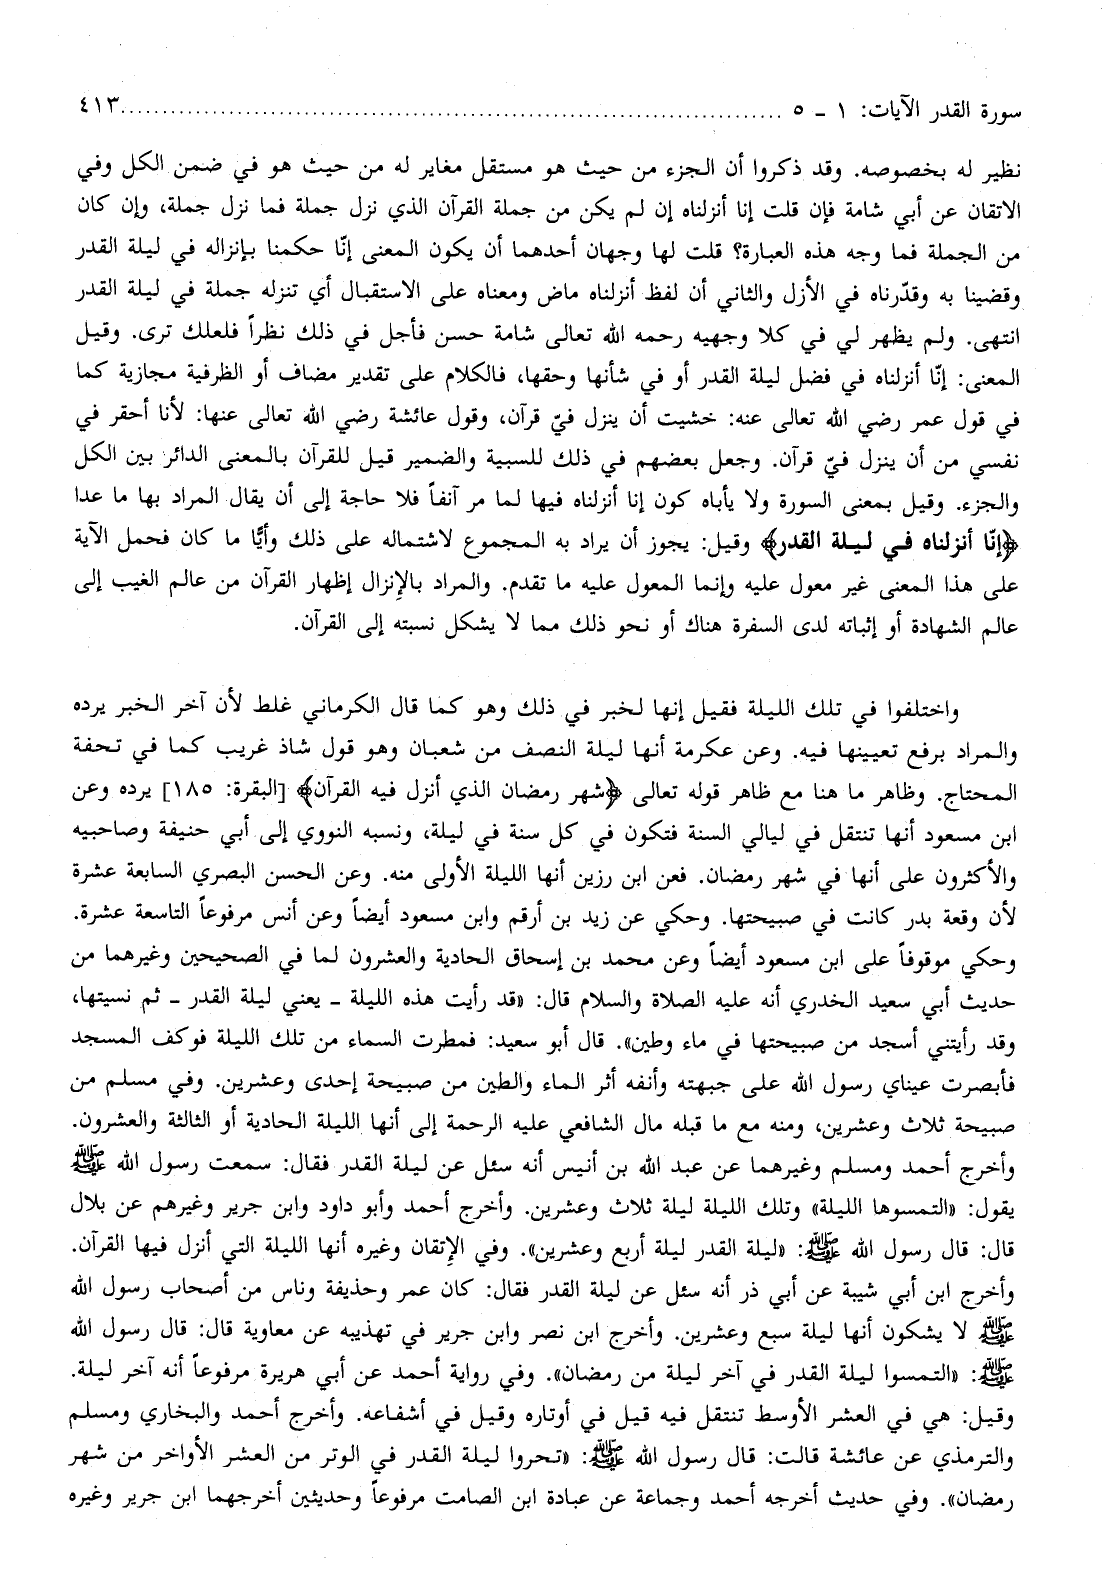 سورة القدر الآيات: ١ ـ ٥ .................................................................................. ٤١٣
نظير له بخصوصه. وقد ذكروا أن الجزء من حيث هو مستقل مغاير له من حيث هو في ضمن الكل وفي
الاتقان عن أبي شامة فإن قلت إنا أنزلناه إن لم يكن من جملة القرآن الذي نزل جملة فما نزل جملة، وإن كان
من الجملة فما وجه هذه العبارة؟ قلت لها وجهان أحدهما أن يكون المعنى إنّا حكمنا بإنزاله في ليلة القدر
وقضينا به وقدّرناه في الأزل والثاني أن لفظ أنزلناه ماض ومعناه على الاستقبال أي تنزله جملة في ليلة القدر
انتهى. ولم يظهر لي في كلا وجهيه رحمه الله تعالى شامة حسن فأجل في ذلك نظراً فلعلك ترى. وقيل
المعنى: إنّا أنزلناه في فضل ليلة القدر أو في شأنها وحقها، فالكلام على تقدير مضاف أو الظرفية مجازية كما
في قول عمر رضي الله تعالى عنه: خشيت أن ينزل فيّ قرآن، وقول عائشة رضي الله تعالى عنها: لأنا أحقر في
نفسي من أن ينزل فيّ قرآن. وجعل بعضهم في ذلك للسببية والضمير قيل للقرآن بالمعنى الدائر بين الكل
والجزء. وقيل بمعنى السورة ولا يأباه كون إنا أنزلناه فيها لما مر آنفاً فلا حاجة إلى أن يقال المراد بها ما عدا
﴿إنّا أنزلناه في ليلة القدر﴾ وقيل: يجوز أن يراد به المجموع لاشتماله على ذلك وأيًّا ما كان فحمل الآية
على هذا المعنى غير معول عليه وإنما المعول عليه ما تقدم. والمراد بالإنزال إظهار القرآن من عالم الغيب إلى
عالم الشهادة أو إثباته لدى السفرة هناك أو نحو ذلك مما لا يشكل نسبته إلى القرآن.
واختلفوا في تلك الليلة فقيل إنها لخبر في ذلك وهو كما قال الكرماني غلط لأن آخر الخبر يرده
والمراد برفع تعيينها فيه. وعن عكرمة أنها ليلة النصف من شعبان وهو قول شاذ غريب كما في تحفة
المحتاج. وظاهر ما هنا مع ظاهر قوله تعالى ﴿شهر رمضان الذي أنزل فيه القرآن﴾ [البقرة: ١٨٥] يرده وعن
ابن مسعود أنها تنتقل في ليالي السنة فتكون في كل سنة في ليلة، ونسبه النووي إلى أبي حنيفة وصاحبيه
والأكثرون على أنها في شهر رمضان. فعن ابن رزين أنها الليلة الأولى منه. وعن الحسن البصري السابعة عشرة
لأن وقعة بدر كانت في صبيحتها. وحكي عن زيد بن أرقم وابن مسعود أيضاً وعن أنس مرفوعاً التاسعة عشرة.
وحكي موقوفاً على ابن مسعود أيضاً وعن محمد بن إسحاق الحادية والعشرون لما في الصحيحين وغيرهما من
حديث أبي سعيد الخدري أنه عليه الصلاة والسلام قال: «قد رأيت هذه الليلة ـ يعني ليلة القدر ـ ثم نسيتها،
وقد رأيتني أسجد من صبيحتها في ماء وطين». قال أبو سعيد: فمطرت السماء من تلك الليلة فوكف المسجد
فأبصرت عيناي رسول الله على جبهته وأنفه أثر الماء والطين من صبيحة إحدى وعشرين. وفي مسلم من
صبيحة ثلاث وعشرين، ومنه مع ما قبله مال الشافعي عليه الرحمة إلى أنها الليلة الحادية أو الثالثة والعشرون.
وأخرج أحمد ومسلم وغيرهما عن عبد الله بن أنيس أنه سئل عن ليلة القدر فقال: سمعت رسول الله ﷺ
يقول: «التمسوها الليلة» وتلك الليلة ليلة ثلاث وعشرين. وأخرج أحمد وأبو داود وابن جرير وغيرهم عن بلال
قال: قال رسول الله ﷺ: «ليلة القدر ليلة أربع وعشرين». وفي الإتقان وغيره أنها الليلة التي أنزل فيها القرآن.
وأخرج ابن أبي شيبة عن أبي ذر أنه سئل عن ليلة القدر فقال: كان عمر وحذيفة وناس من أصحاب رسول الله
ﷺ لا يشكون أنها ليلة سبع وعشرين. وأخرج ابن نصر وابن جرير في تهذيبه عن معاوية قال: قال رسول الله
ﷺ: «التمسوا ليلة القدر في آخر ليلة من رمضان». وفي رواية أحمد عن أبي هريرة مرفوعاً أنه آخر ليلة.
وقيل: هي في العشر الأوسط تنتقل فيه قيل في أوتاره وقيل في أشفاعه. وأخرج أحمد والبخاري ومسلم
والترمذي عن عائشة قالت: قال رسول الله ﷺ: «تحروا ليلة القدر في الوتر من العشر الأواخر من شهر
رمضان». وفي حديث أخرجه أحمد وجماعة عن عبادة ابن الصامت مرفوعاً وحديثين أخرجهما ابن جرير وغيره